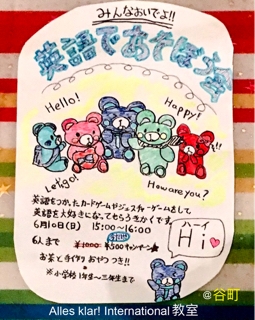 みんなおいでよ!!
英語であそぼう
Hello!
Happy!
Let'go!
How are you?
英語をつかったカードゲームやジェスチャーゲームをして
英語を大好きになってもらうきかくです。
6月10日(日) 15:00〜16:00
6人まで ¥1000 ¥500キャンペーン
お茶と手作りおやつつき!!
※小学校1年生〜三年生まで
ハーイ
Hi
@谷町
Alles klar! International 教室